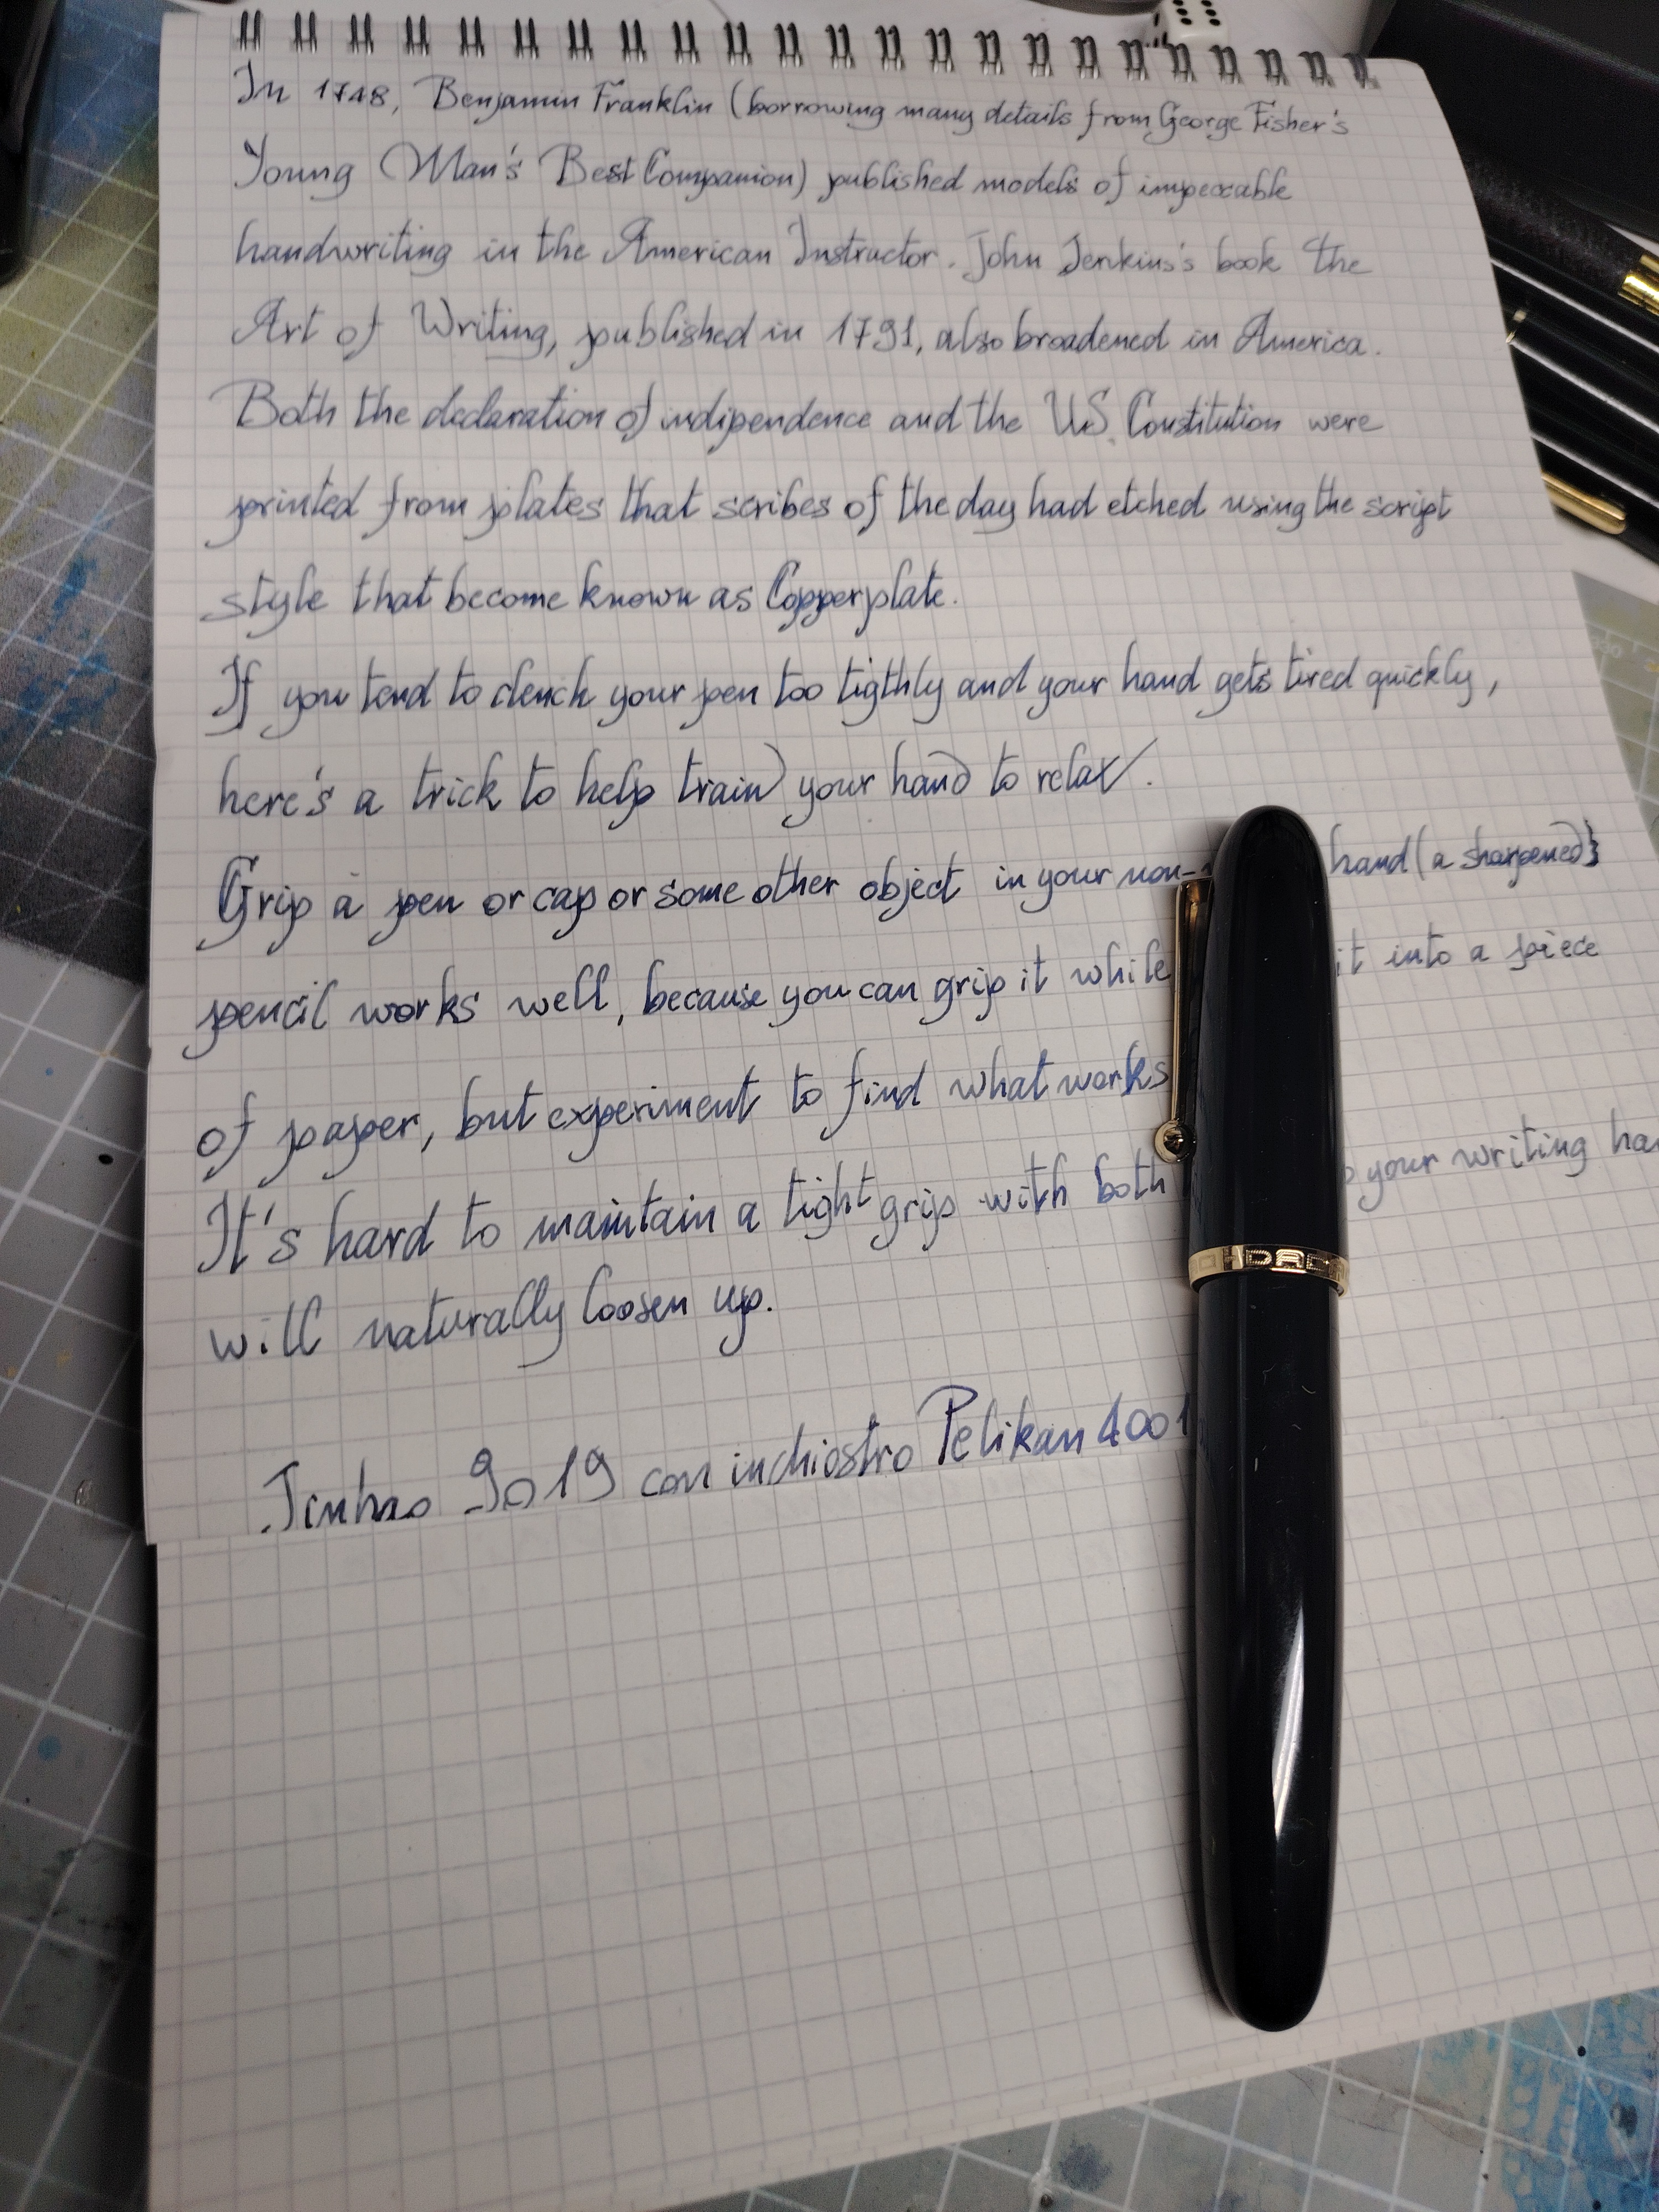 In 1748, Benjamin Franklin (borrowing many details from George Fisher's
Young Man's Best Companion) published models of impeccable
handwriting in the American Instructor. John Jenkins's book the
Art of Writing, published in 1791, also broadened in America.
Both the declaration of indipendence and the US. Constitution were
printed from plates that scribes of the day had etched using the script
style that become known as Copperplate.
If you tend to clench your pen too tigthly and your hand gets tired quickly,
here's a trick to help train your hand to relax.
Grip a pen or cap or some other object in your non- hand (a sharpened)
pencil works well, because you can grip it while it into a piece
of paper, but experiment to find what works
It's hard to maintain a tight grip with both your writing
will naturally loosen up.
Jinhao 9019 con inchiostro Pelikan 4001